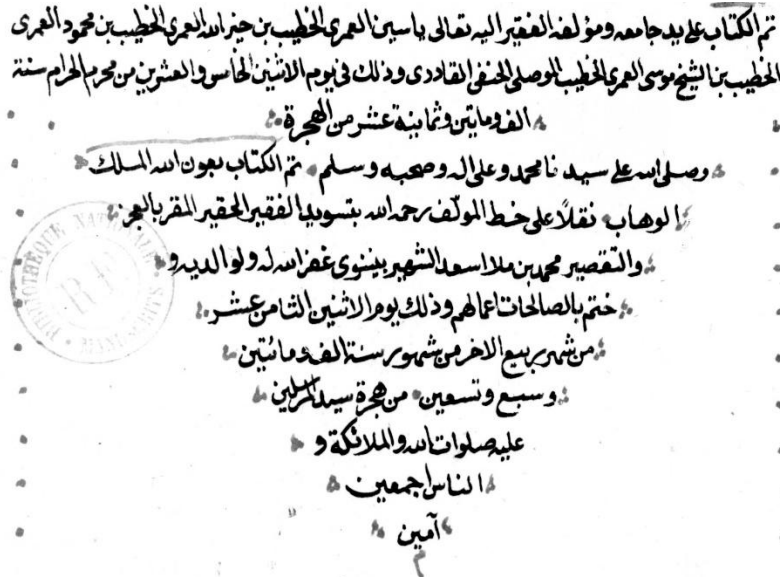 تم الكتاب على يد جامعه ومؤلفه الفقير اليه تعالى ياسين العمرى الخطيب بن خير الله العمرى الخطيب بن محمود العمرى
الخطيب بن الشيخ موسى العمرى الخطيب الموصلى الحنفى القادرى وذلك فى يوم الاثنين الخامس والعشرين من محرم الحرام سنة
الف ومايتين وثمانية عشر من الهجرة
وصلى الله على سيدنا محمد وعلى اله وصحبه وسلم تم الكتاب بعون الله الملك
الوهاب نقلاً على خط المولف رحمه الله بتسويد الفقير الحقير المقر بالعجز
والتقصير محمد بن ملا اسعد الشهير بنينوى غفر الله له ولوالديه و
ختم بالصالحات اعمالهم وذلك يوم الاثنين الثامن عشر
من شهر ربيع الاخر من شهور سنة الف ومائتين
وسبع وتسعين من هجرة سيد المرسلين
عليه صلوات الله والملائكة و
الناس اجمعين
آمين
م
BIBLIOTHEQUE NATIONALE
MANUSCRITS